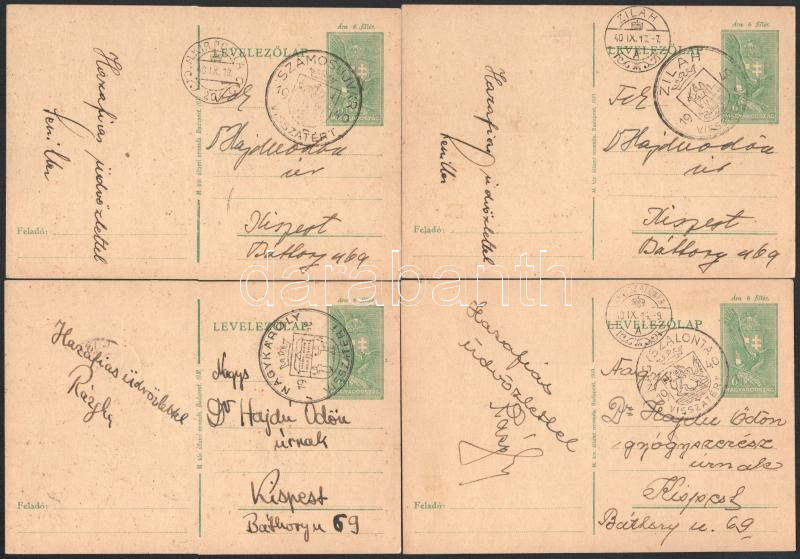 Ára 6 fillér.
LEVELEZŐLAP
SZAMOSUJVÁR
VISSZATÉRT
MAGYARORSZÁG
Hazafias üdvözlettel
Dr Hajdu Ödön
úr
Kispest
Báthory u 69
Feladó:
Ára 6 fillér.
LEVELEZŐLAP
ZILAH
40 IX. 17.-7
A
ZILAH
1940
VISSZATÉRT
MAGYARORSZÁG
Hazafias üdvözlettel
Dr Hajdu Ödön
úr
Kispest
Báthory u 69
Feladó:
darabanth
Ára 6 fillér.
LEVELEZŐLAP
NAGYKÁROLY
MAGYARORSZÁG
Hazafias üdvözlettel
Nagys
Dr Hajdu Ödön
úrnak
Kispest
Báthory u 69
Feladó:
Ára 6 fillér.
LEVELEZŐLAP
SZALONTA
1940
VISSZATÉRT
MAGYARORSZÁG
Hazafias
üdvözlettel
Nagys
Dr. Hajdu Ödön
gyógyszerész
úrnak
Kispest
Báthory u. 69.
Feladó: